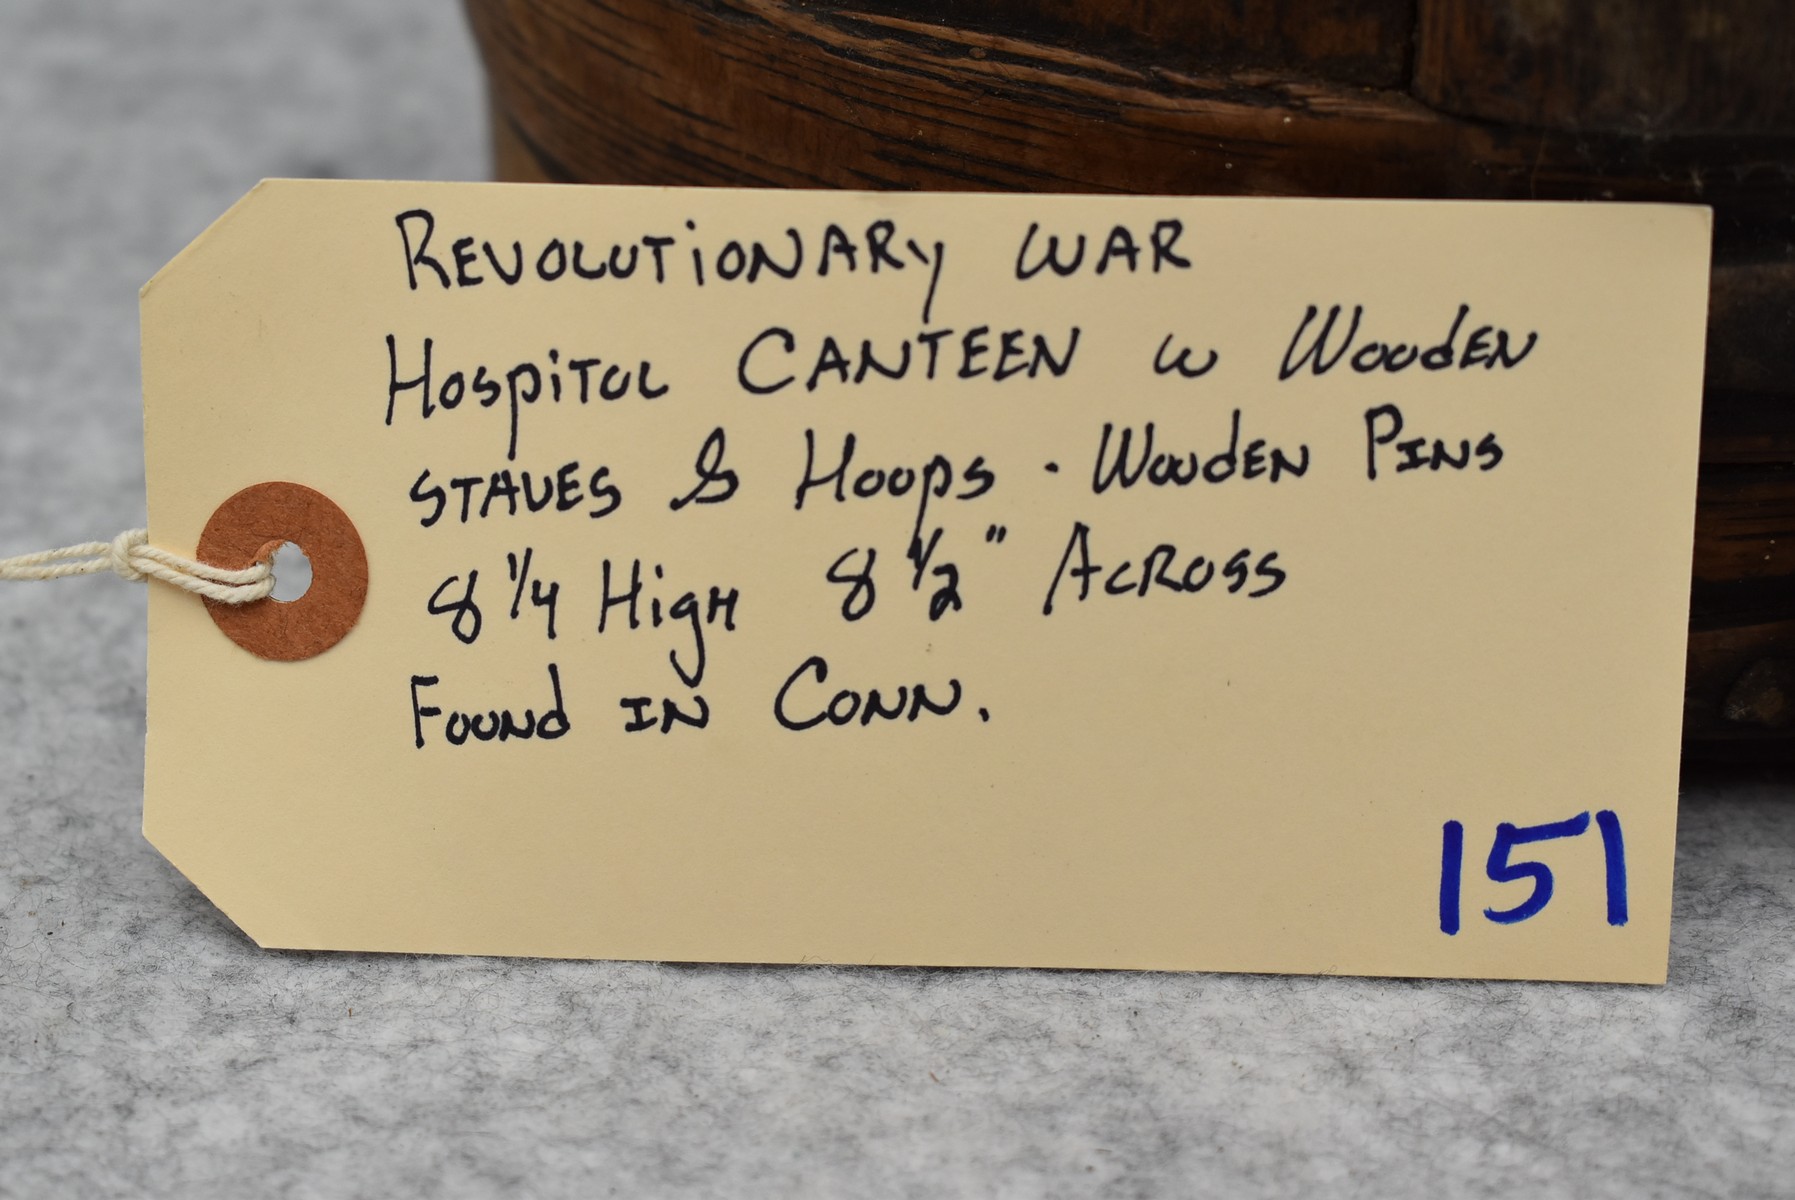 REVOLUTIONARY WAR
HOSPITAL CANTEEN W WOODEN
STAVES & HOOPS · WOODEN PINS
8 1/4 HIGH 8 1/2" ACROSS
FOUND IN CONN.
151